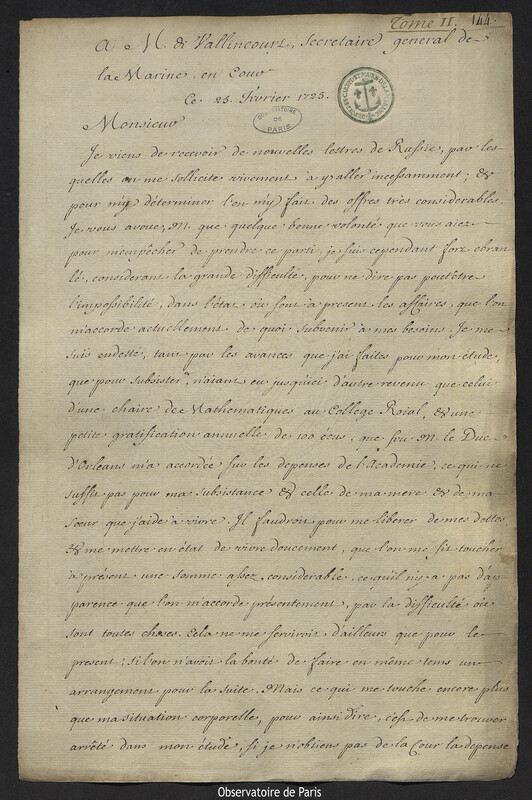 Tome II. 144.
A M. de Vallincourt, secretaire general de
la Marine, en Cour
Ce 25. Fevrier 1725.
OBSERVATOIRE DE PARIS
Monsieur
Je viens de recevoir de nouvelles lettres de Russie, par les
quelles on me sollicite vivement à y aller incessamment; &
pour m'y determiner l'on m'y fait des offres très considerables.
Je vous avoue, M. que quelque bonne volonté que vous aiez
pour m'empêcher de prendre ce parti, je suis cependant fort ebran
lé, considerant la grande difficulté, pour ne dire pas peutêtre
l'impossibilité, dans l'état où sont à present les affaires, que l'on
m'accorde actuellement de quoi subvenir à mes besoins. Je me
suis endetté, tant par les avances que j'ai faites pour mon étude,
que pour subsister, n'aiant eu jusqu'ici d'autre revenu que celui
d'une chaire de Mathematiques au College Roial, & une
petite gratification annuelle de 100 écus, que feu M. le Duc
d'Orleans m'a accordée sur les depenses de l'Academie, ce qui ne
suffit pas pour ma subsistance & celle de ma mere & de ma
sœur que j'aide à vivre. Il faudroit pour me liberer de mes dettes
& me mettre en état de vivre doucement, que l'on me fit toucher
à présent une somme assez considerable, ce qu'il n'y a pas d'ap
parence que l'on m'accorde présentement, par la difficulté où
sont toutes choses. Cela ne me serviroit d'ailleurs que pour le
present; si l'on n'avoit la bonté de faire en même tems un
arrangement pour la suite. Mais ce qui me touche encore plus
que ma situation corporelle, pour ainsi dire, c'est de me trouver
arrêté dans mon étude, si je n'obtiens pas de la Cour la depense
Observatoire de Paris